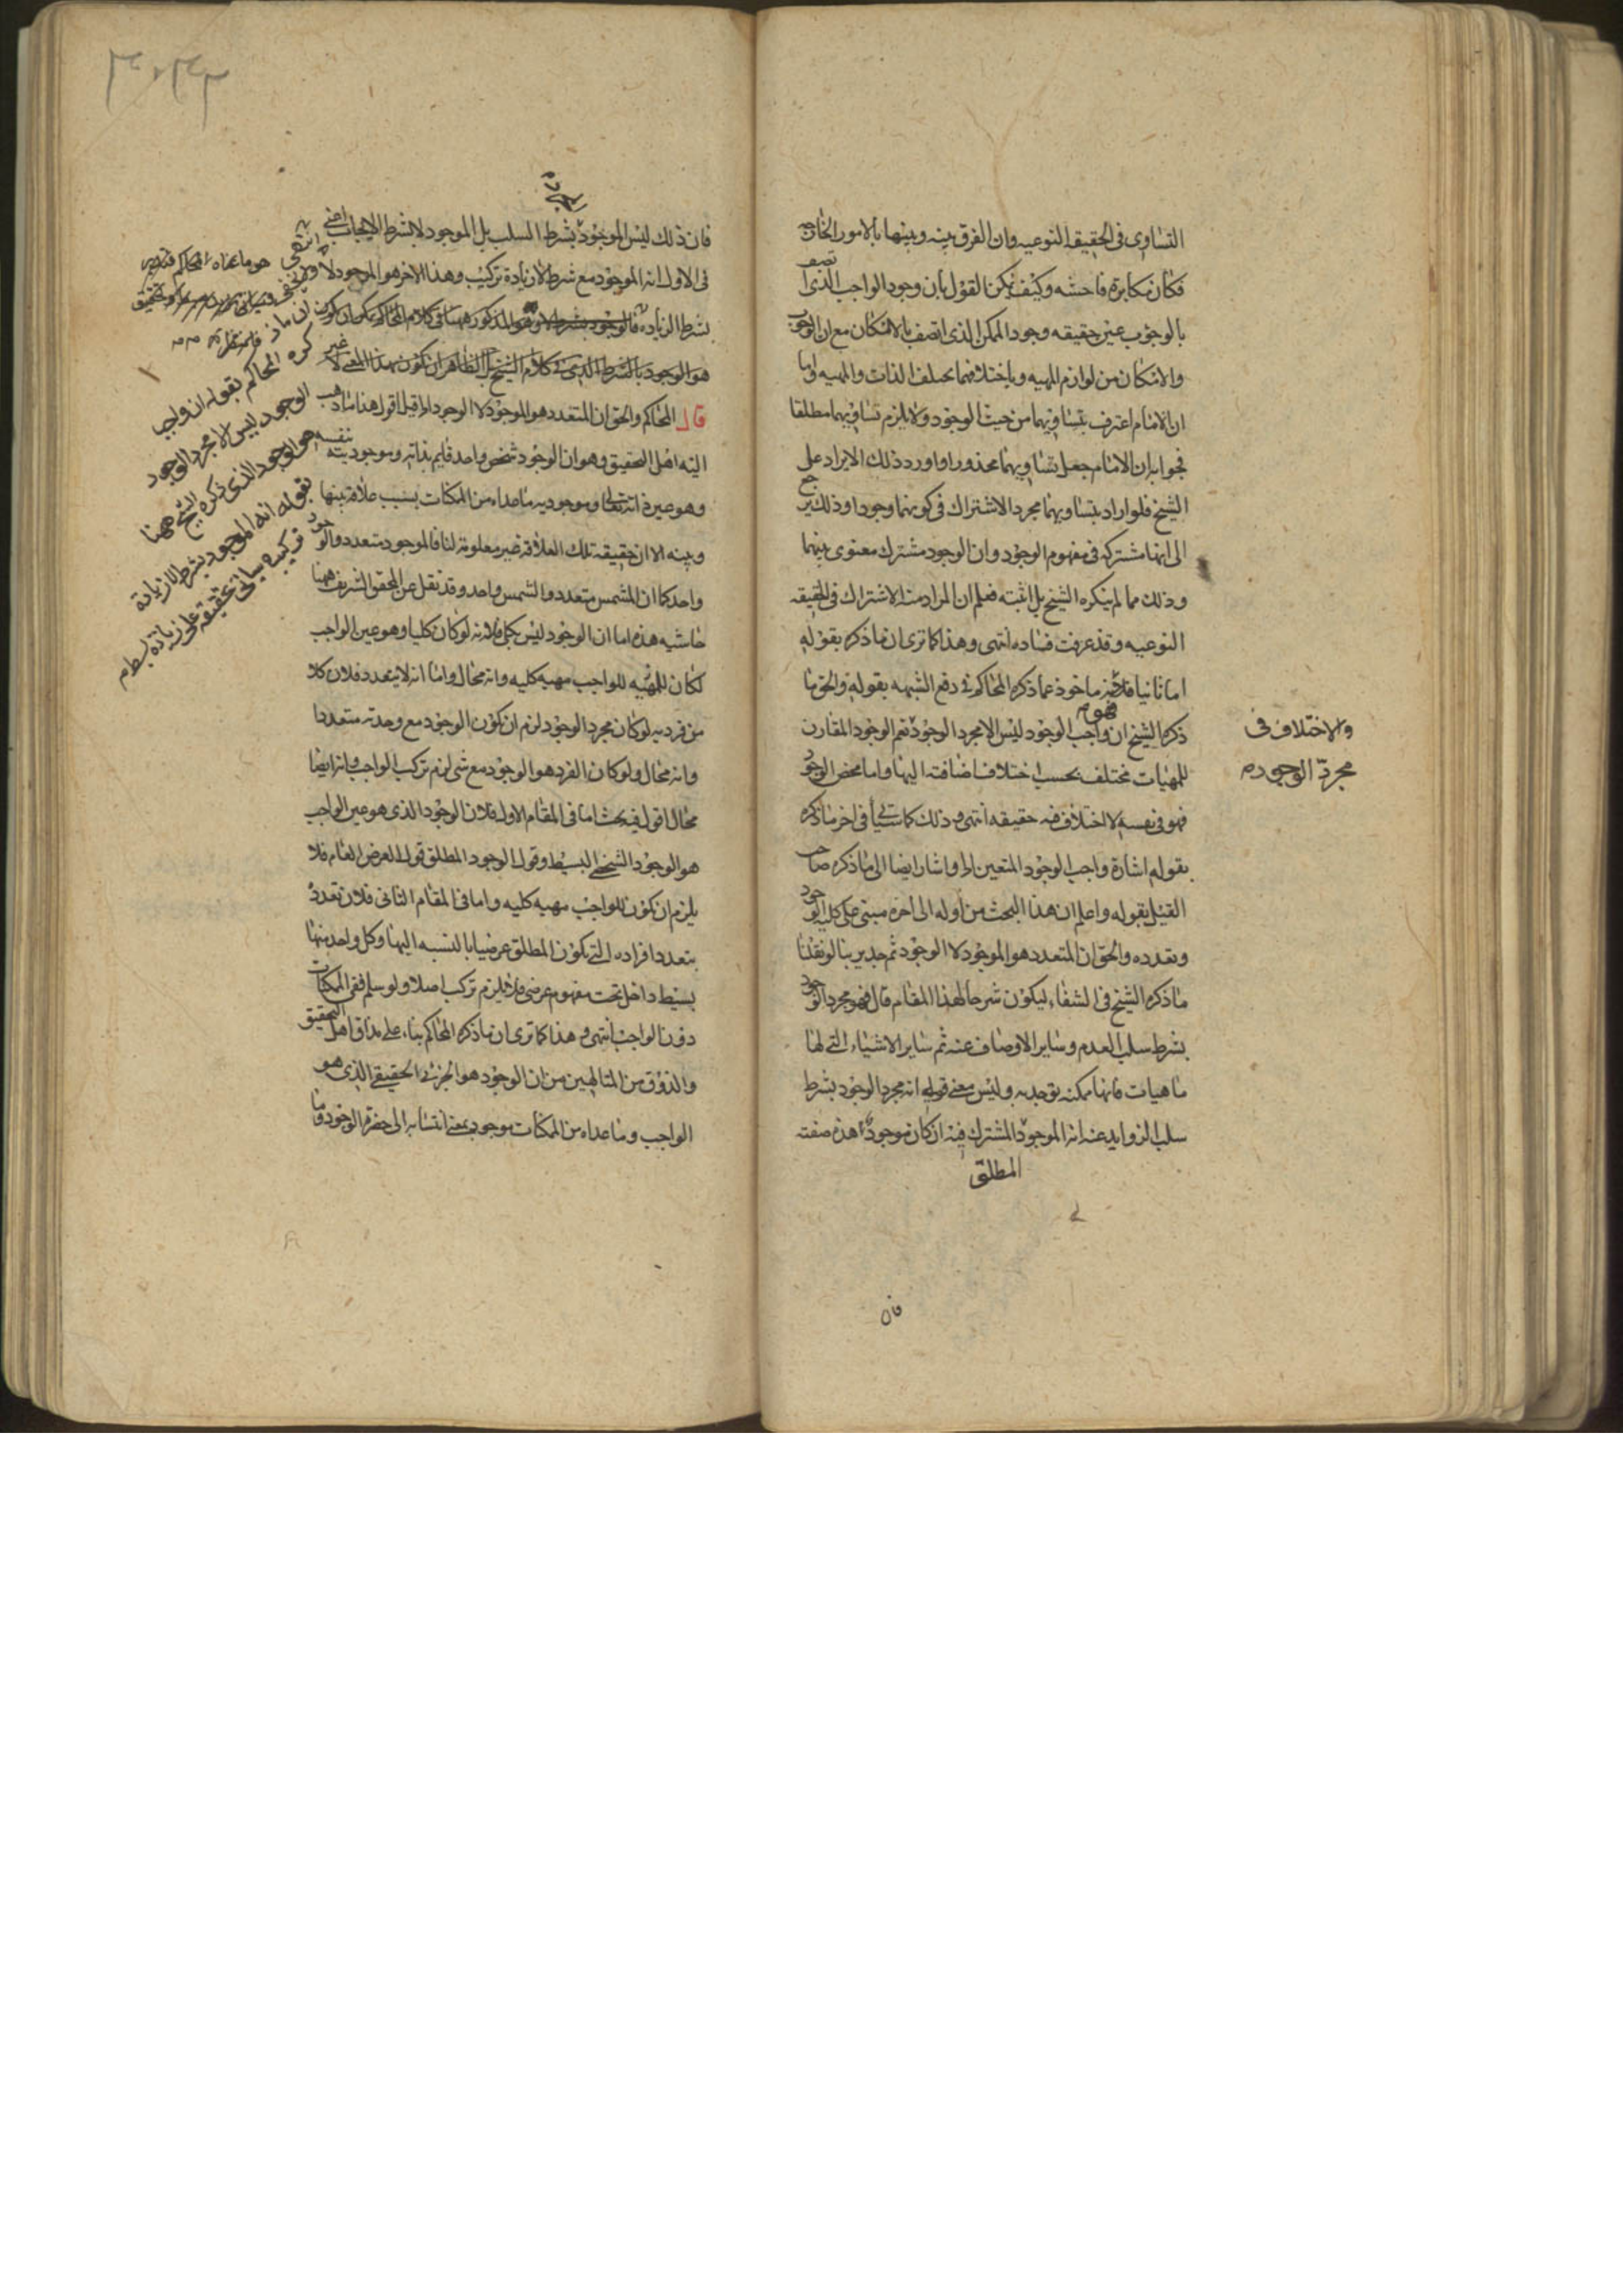 التساوى فى الحقيقه النوعيه وان الفرق بينه وبينها بالامور الخارجه
فكان مكابرة فاحشه وكيف يمكن القول بان وجود الواجب الذى اتصف
بالوجوب عين حقيقه وجود الممكن الذى اتصف بالامكان مع ان الوجوب
والامكان من لوازم المهيه وباختلافهما يختلف الذات والمهيه واما
ان الامام اعترف بتساويهما من حيث الوجود ولا يلزم تساويهما مطلقا
فجوابه ان الامام جعل تساويهما محذورا واورد ذلك الايراد على
الشيخ فلو اراد بتساويهما مجرد الاشتراك فى كونهما وجودا وذلك يرجع
الى انهما مشتركه فى مفهوم الوجود وان الوجود مشترك معنوى بينهما
وذلك مما لم ينكره الشيخ بل اثبته فعلم ان المراد منه الاشتراك فى الحقيقه
النوعيه وقد عرفت فساده انتهى وهذا كما ترى ان ما ذكره بقوله
اما ثانيا فلانه ماخوذ عما ذكره المحاكم فى دفع الشبهه بقوله والحق ما
ذكره الشيخ ان واجب الوجود ليس الا مجرد الوجود نعم الوجود المقارن
للمهيات مختلف بحسب اختلاف اضافته اليها واما محض الوجود
فهو فى نفسه لا اختلاف فيه حقيقه انتهى وذلك كما سيأتى فى اخر ما ذكره
بقوله اشارة واجب الوجود المتعين الخ واشار ايضا الى ما ذكره صاحب
القيل بقوله واعلم ان هذا البحث من اوله الى اخره مبنى على كليه الوجود
وتعدده والحق ان المتعدد هو الموجود لا الوجود ثم جدير بنا لو نقلنا
ما ذكره الشيخ فى الشفاء ليكون شرحا لهذا المقام قال فهو مجرد الوجود
بشرط سلب العدم وساير الاوصاف عنه ثم ساير الاشياء التى لها
ماهيات فانها ممكنه توجد به وليس معنى قولى انه مجرد الوجود بشرط
سلب الزوايد عنه انه الموجود المشترك فيه ان كان موجودا هذه صفته
المطلق
فان
والاختلاف فى
مجرد الوجود
فان ذلك ليس الموجود بشرط السلب بل الموجود لا بشرط الايجاب اعنى
فى الاول انه الموجود مع شرط لا زيادة تركيب وهذا الاخر هو الموجود لا
بشرط الزيادة
هو الوجود بالشرط الذى فى كلام الشيخ بل الظاهر ان يكون بهذا المعنى لا غير
قال المحاكم والحق ان المتعدد هو الموجود لا الوجود الخ قيل اقول هذا ما ذهب
اليه اهل التحقيق وهو ان الوجود شخص واحد قايم بذاته وموجوديته بنفسه
وهو عين ذاته تعالى وموجوديه ما عداه من الممكنات بسبب علاقه بينها
وبينه الا ان حقيقه تلك العلاقه غير معلومة لنا فالموجود متعدد والوجود
واحد كما ان المشمس متعدد والشمس واحد وقد نقل عن المحقق الشريف ههنا
حاشيه هذه اما ان الوجود ليس بكلى فلانه لو كان كليا وهو عين الواجب
لكان للمهيه للواجب مهيه كليه وانه محال واما انه لا يتعدد فلان كلا
من فرديه لو كان مجرد الوجود لزم ان يكون الوجود مع وحدته متعددا
وانه محال ولو كان الفرد هو الوجود مع شى لزم تركب الواجب وانه ايضا
محال اقول فيه بحث اما فى المقام الاول فلان الوجود الذى هو عين الواجب
هو الوجود الشخصى البسيط وقول الوجود المطلق قول العرض العام فلا
يلزم ان يكون للواجب مهيه كليه واما فى المقام الثانى فلان تعدد
بتعدد افراده التى يكون المطلق عرضيا بالنسبه اليها وكل واحد منها
بسيط داخل تحت مفهوم عرضى فلا يلزم تركب اصلا ولو سلم ففى الممكنات
دون الواجب انتهى وهذا كما ترى ان ما ذكره المحاكم بناء على مذاق اهل التحقيق
والذوق من المتالهين من ان الوجود هو الجزئى الحقيقى الذى هو
الواجب وما عداه من الممكنات موجود بمعنى انتسابه الى حضرة الوجود وما
انتهى
هو ما عناه المحاكم فتدبر
كره المحاكم بقوله ان واجب
الوجود ليس الا مجرد الوجود
هو الوجود الذى ذكره الشيخ ههنا
بقوله انه الموجود بشرط لا زيادة
تركيب وسياتى تحقيقه على زيادة بسط